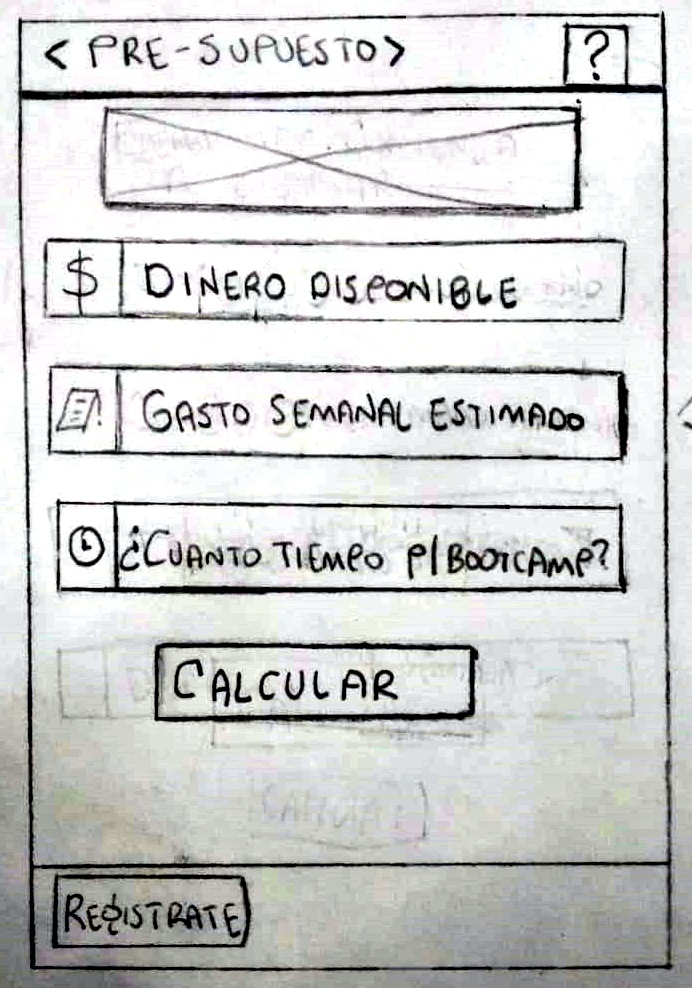 < PRE-SUPUESTO> ?
$ DINERO DISPONIBLE
GASTO SEMANAL ESTIMADO
¿CUANTO TIEMPO P/BOOTCAMP?
CALCULAR
REGISTRATE